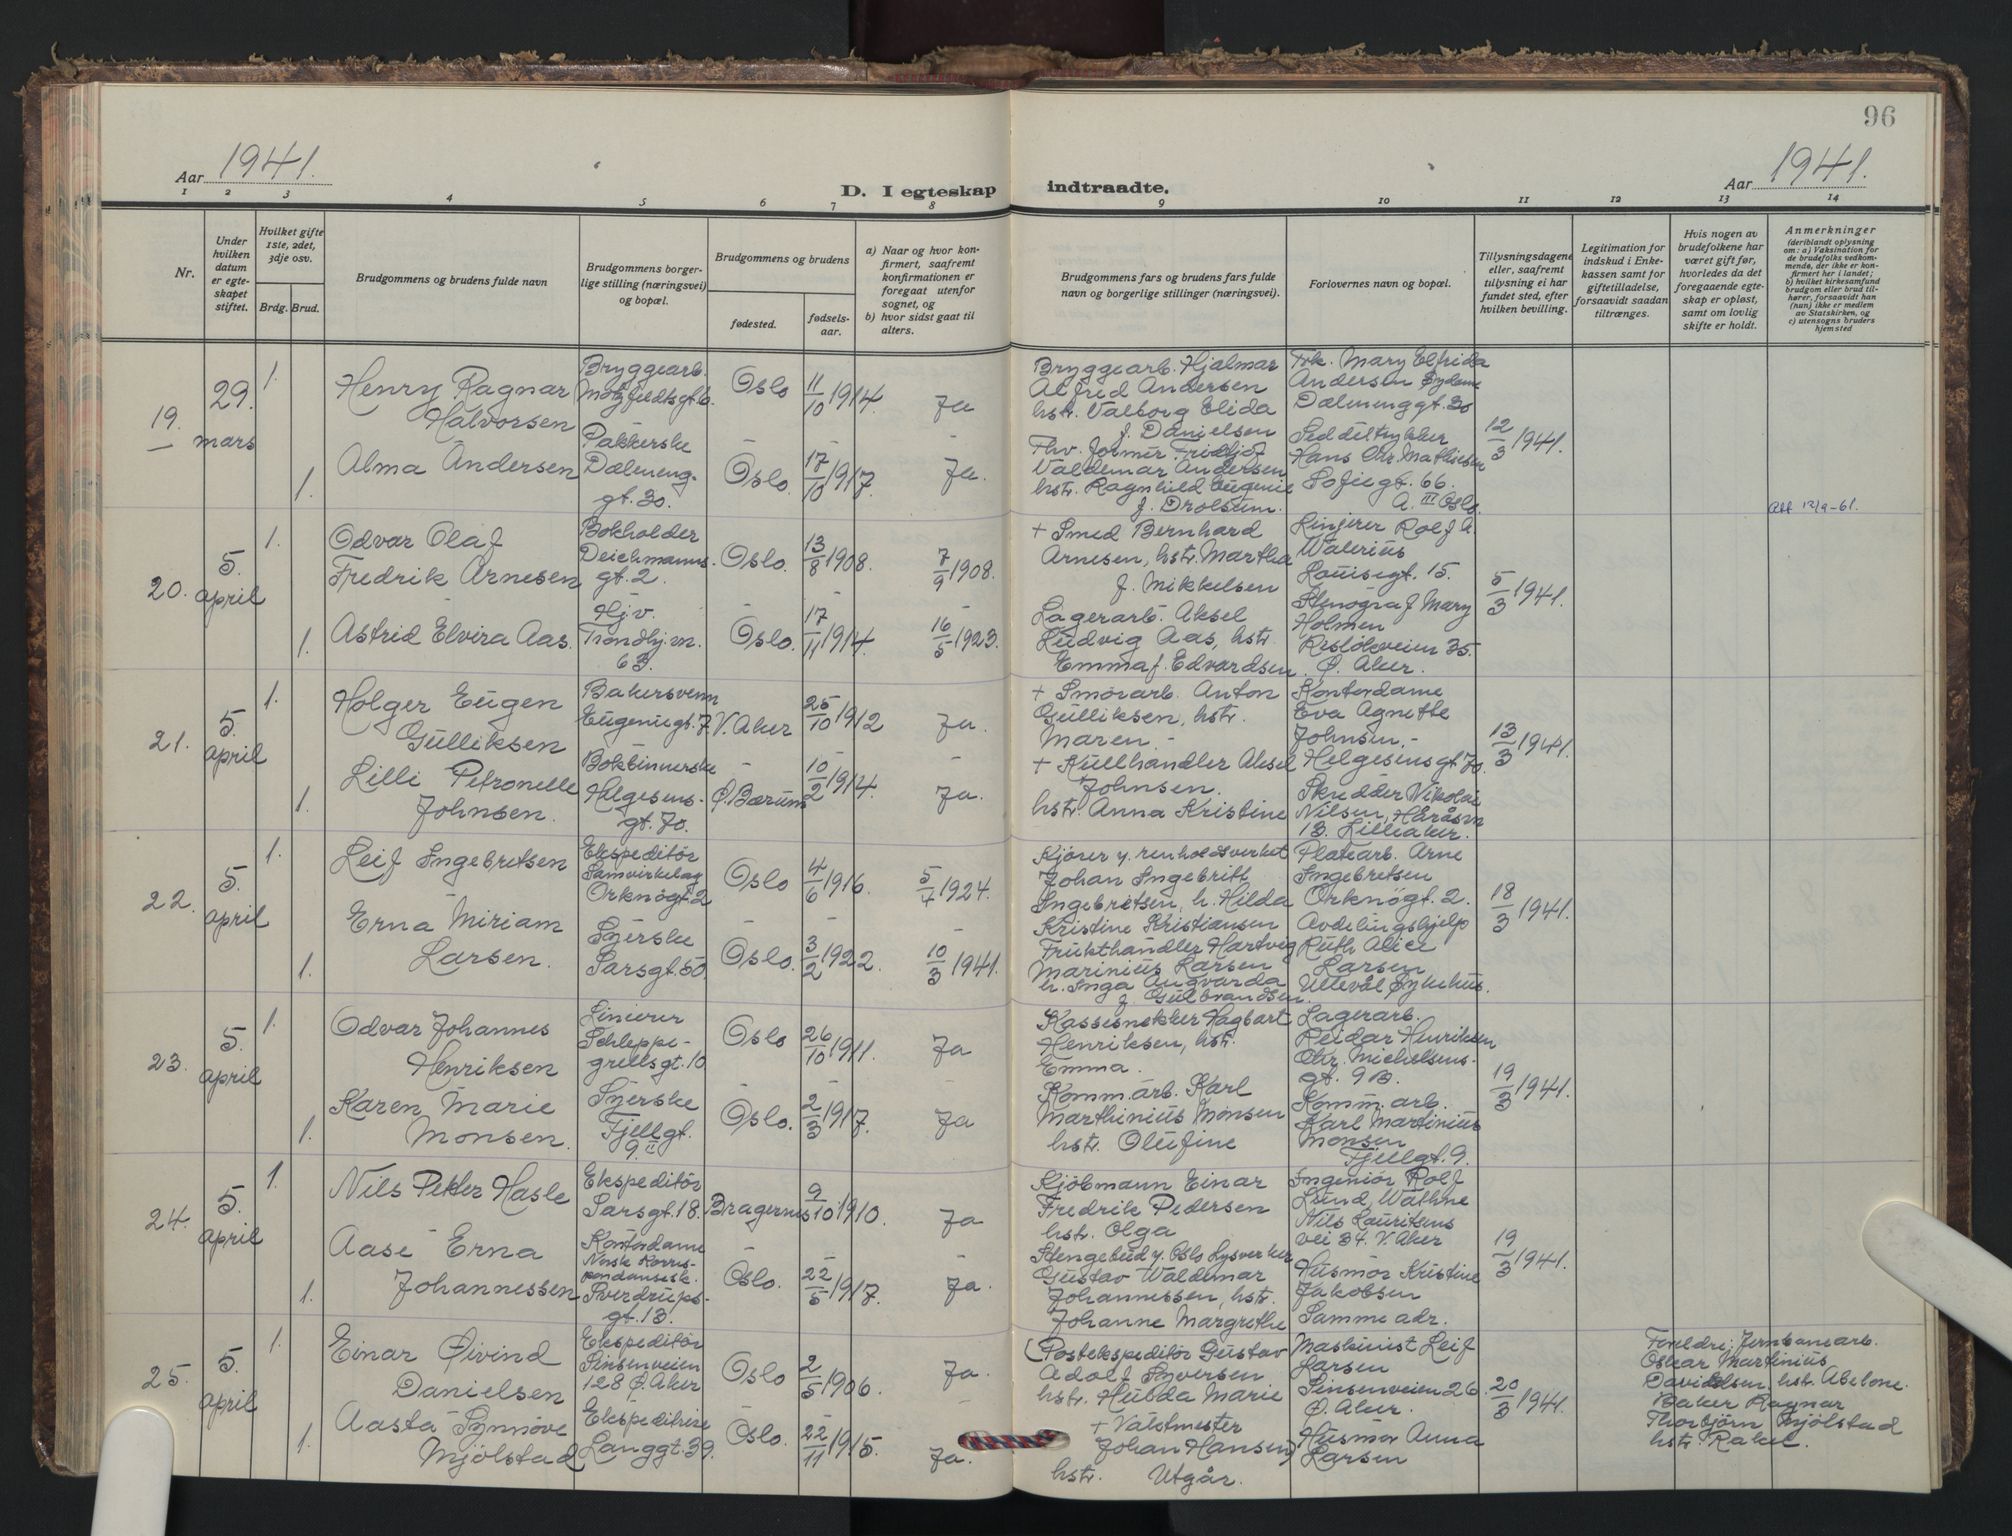 96
Aar 1941.
D. I egteskap indtraadte.
Aar 1941.
1 2 3 4 5 6 7 8 9 10 11 12 13 14
Nr.
Under hvilken datum er egteskapet stiftet.
Hvilket gifte 1ste, 2det, 3dje osv.
Brdg. Brud.
Brudgommens og brudens fulde navn
Brudgommens borgerlige stilling (næringsvei) og bopæl.
Brudgommens og brudens
fødested.
fødselsaar.
a) Naar og hvor konfirmert, saafremt konfirmationen er foregaat utenfor sognet, og
b) hvor sidst gaat til alters.
Brudgommens fars og brudens fars fulde navn og borgerlige stillinger (næringsvei).
Forlovernes navn og bopæl.
Tillysningsdagene eller, saafremt tillysning ei har fundet sted, efter hvilken bevilling.
Legitimation for indskud i Enkekassen samt for giftetilladelse, forsaavidt saadan tiltrænges.
Hvis nogen av brudefolkene har været gift før, hvorledes da det foregaaende egteskap er opløst, samt om lovlig skifte er holdt.
Anmerkninger
(deriblandt oplysning om: a) Vaksination for de brudefolks vedkommende, der ikke er konfirmert her i landet; b) hvilket kirkesamfund brudgom eller brud tilhører, forsaavidt han (hun) ikke er medlem av Statskirken, og c) utensogns bruders hjemsted
19.
29. mars
1.
Henry Ragnar
Halvorsen
Bryggearb.
Motzfeldtsgt. 6.
Oslo
11/10 1914.
Ja
Bryggearb. Hjalmar
Alfred Andersen
hst. Valborg Elida
f. Danielsen
Frk. Mary Elfrida
Andersen Sydame
Dælenenggt. 30
12/3 1941.
1.
Alma Andersen
Pakkerske
Dæleneng-
gt. 30.
Oslo.
17/10 1917.
Ja.
Fhv. formér Fridtjof
Valdemar Andersen
hst. Ragnhild Eugenie
f. Drolsum.
Seddeltrykker
Hans Chr. Mathiesen
Sofiegt. 66.
A. III Oslo.
Att 12/9-61.
20.
5. april
1.
Odvar Olaf
Fredrik Arnesen
Bokholder
Deichmanns-
gt. 2.
Oslo.
13/8 1908.
7/9 1908.
+ Smed Bernhard
Arnesen, hst. Martha
f. Mikkelsen
Linjerer Rolf A.
Walerius
Louisegt. 15.
5/3 1941.
1.
Astrid Elvira Aas.
Hjv.
Trondhj.vn.
63.
Oslo.
17/11 1914.
16/5 1923.
Lagerarb. Aksel
Ludvig Aas, hst.
Emma f. Edvardsen.
Stenograf Mary
Holmen
Risløkkveien 35.
Ø. Aker.
21.
5. april
1.
Holger Eugen
Gulliksen
Bakersvenn
Eugeniegt. 7.
V. Aker
25/10 1912
Ja.
+ Smørarb. Anton
Gulliksen, hst.
Maren.
Kontordame
Eva Agnethe
Johnsen.
Helgesensgt 70.
13/3 1941.
1.
Lilli Petronelle
Johnsen.
Bokbinnerske
Helgesens-
gt. 70.
Ø. Bærum
10/2 1914.
Ja.
+ Kullhandler Aksel
Johnsen.
hst. Anna Kristine
Skredder Nikolai
Nilsen, Haråsvn
13. Lilleaker.
22.
5. april
1.
Leif Ingebretsen
Ekspeditør
Samvirkelag
Orknøgt. 2
Oslo
4/6 1916.
5/7 1924.
Kjører v. renholdsverket
Johan Ingebritt
Ingebretsen, h. Hilda
Kristine Kristiansen
Platearb. Arne
Ingebretsen
Orknøgt. 2.
18/3 1941.
1.
Erna Miriam
Larsen.
Syerske
Sarsgt. 50.
Oslo.
3/2 1922.
10/3 1941.
Frukthandler Hartvig
Marinius Larsen
h. Inga Augvarda
f. Gulbrandsen.
Avdelingshjelp
Ruth Alice
Larsen
Ullevål Sykehus.
23.
5. april
1.
Odvar Johannes
Henriksen
Linierer
Schleppe-
grellsgt. 10
Oslo
26/10 1911.
Ja
Kassesnekker Hagbart
Henriksen, hst.
Emma.
Lagerarb.
Reidar Henriksen
Chr. Michelsens-
gt. 9 B.
19/3 1941.
1.
Karen Marie
Monsen.
Syerske
Fjellgt.
9 II
Oslo.
2/3 1917.
Ja
Komm.arb. Karl
Marthinius Monsen
hst. Olufine
Komm. arb.
Karl Martinius
Monsen
Fjellgt. 9.
24.
5. april
1.
Nils Petter Hasle
Ekspeditør
Sarsgt. 18.
Bragernes
9/10 1910.
Ja
Kjøbmann Einar
Fredrik Pedersen
hst. Olga
Ingeniør Rolf
Lund, Wathne
Nils Lauritsens
vei 34. V. Aker
19/3 1941.
1.
Aase Erna
Johannessen
Kontordame
Norsk Korres-
pondansesk.
Sverdrups-
gt. 13.
Oslo.
22/5 1917.
Ja.
Stengebud v. Oslo Lysverker
Gustav Waldemar
Johannessen, hst.
Johanne Margrethe
Husmor Kristine
Jakobsen
Samme adr.
25.
5. april
1.
Einar Øivind
Danielsen
Ekspeditør
Sinsenveien
128 Ø. Aker
Oslo
2/5 1906.
Ja.
(Postekspeditør Gustav
Adolf Syversen
hst. Hulda Marie
Maskinist Leif
Larsen
Sinsenveien 26.
Ø. Aker.
20/3 1941.
Foreldre: Jernbanearb.
Oskar Martinius
Davidsen, hst. Abelone.
1.
Aasta Synnøve
Mjølstad
Ekspeditrise
Langgt. 39.
Oslo.
22/11 1915.
Ja.
+ Vaktmester
Johan Hansen)
hst. Utgår.
Husmor Anna
Larsen
Baker Ragnar
Thorbjørn Mjølstad
hst. Rakel.